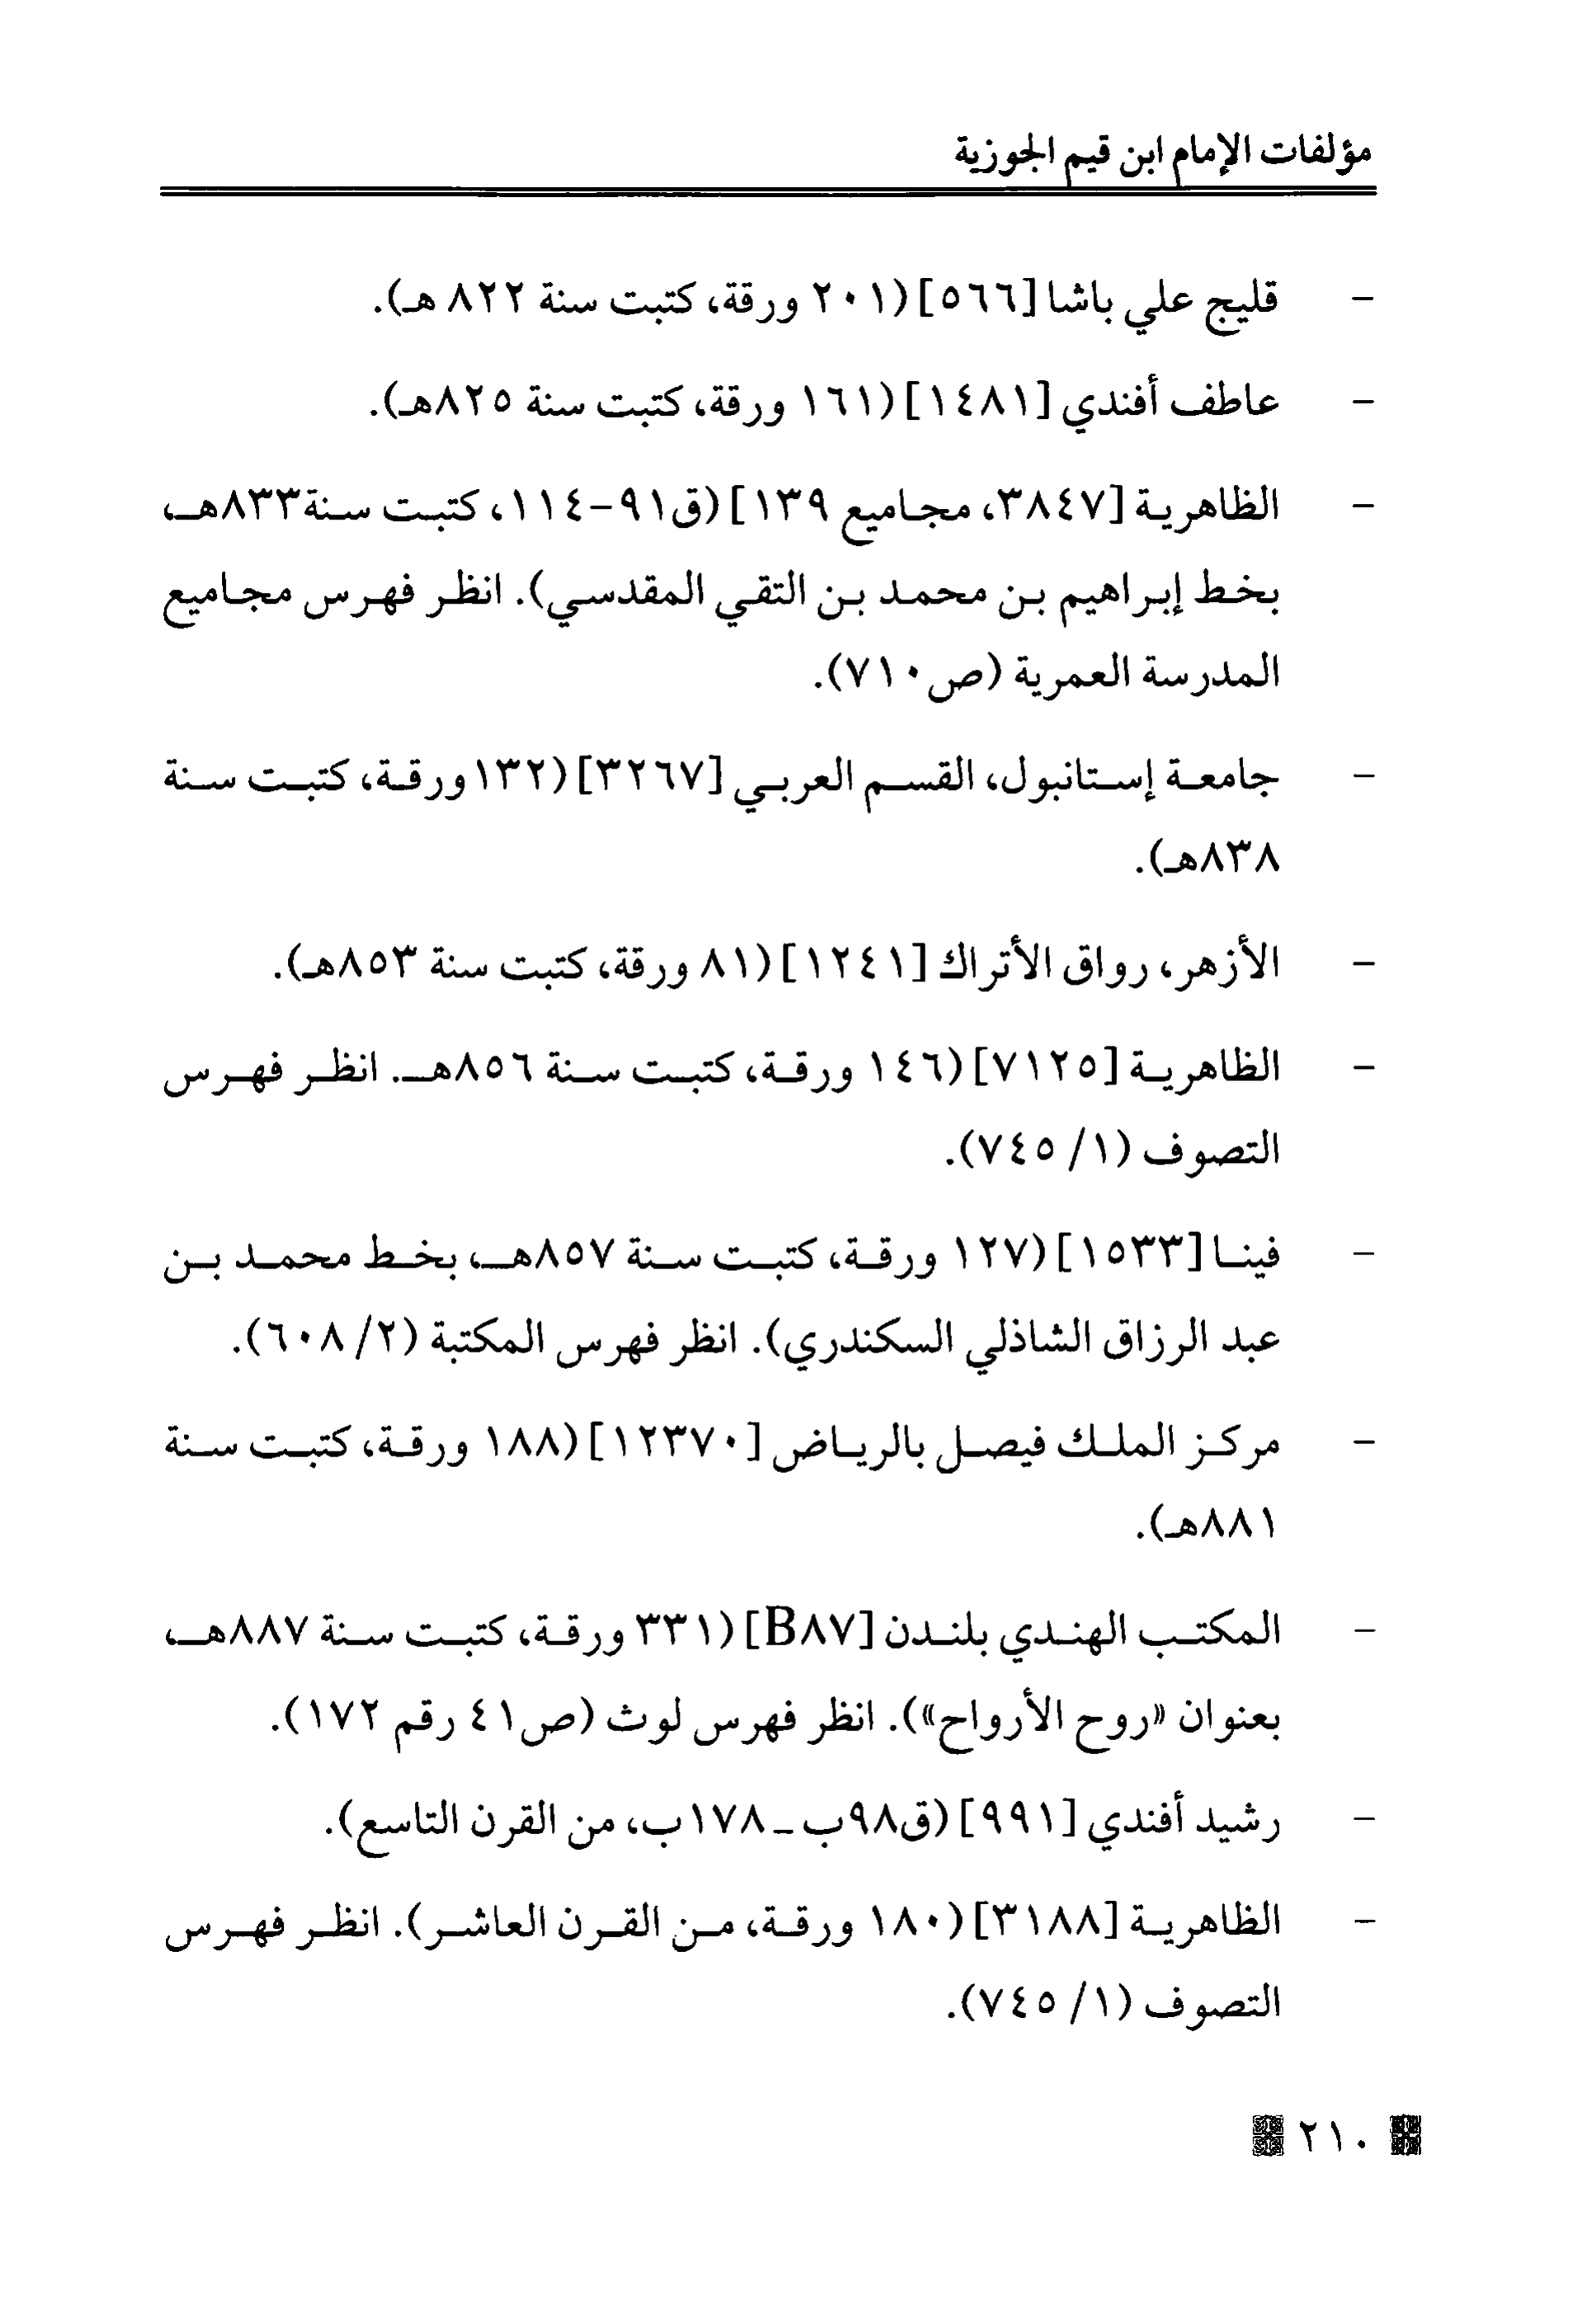 مؤلفات الإمام ابن قيم الجوزية
- قليج علي باشا [٥٦٦] (٢٠١ ورقة، كتبت سنة ٨٢٢ هـ).
- عاطف أفندي [١٤٨١] (١٦١ ورقة، كتبت سنة ٨٢٥هـ).
- الظاهرية [٣٨٤٧، مجاميع ١٣٩] (ق٩١-١١٤، كتبت سنة٨٣٣هـ،
بخط إبراهيم بن محمد بن التقي المقدسي). انظر فهرس مجاميع
المدرسة العمرية (ص٧١٠).
- جامعة إستانبول، القسم العربي [٣٢٦٧] (١٣٢ورقة، كتبت سنة
٨٣٨هـ).
- الأزهر، رواق الأتراك [١٢٤١] (٨١ ورقة، كتبت سنة ٨٥٣هـ).
- الظاهرية [٧١٢٥] (١٤٦ ورقة، كتبت سنة ٨٥٦هـ. انظر فهرس
التصوف (١/ ٧٤٥).
- فينا [١٥٣٣] (١٢٧ ورقة، كتبت سنة ٨٥٧هـ، بخط محمد بن
عبد الرزاق الشاذلي السكندري). انظر فهرس المكتبة (٢/ ٦٠٨).
- مركز الملك فيصل بالرياض [١٢٣٧٠] (١٨٨ ورقة، كتبت سنة
٨٨١هـ).
- المكتب الهندي بلندن [B٨٧] (٣٣١ ورقة، كتبت سنة ٨٨٧هـ،
بعنوان «روح الأرواح»). انظر فهرس لوث (ص٤١ رقم ١٧٢).
- رشيد أفندي [٩٩١] (ق٩٨ب - ١٧٨ب، من القرن التاسع).
- الظاهرية [٣١٨٨] (١٨٠ ورقة، من القرن العاشر). انظر فهرس
التصوف (١/ ٧٤٥).
٢١٠